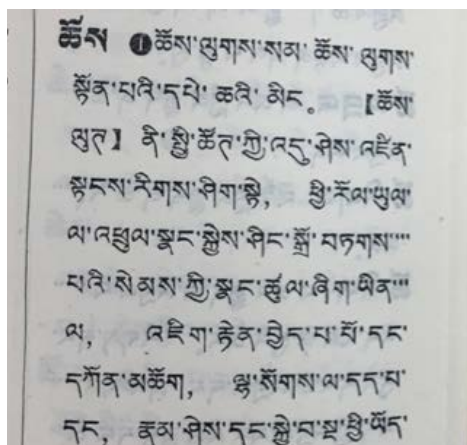 ཆོས ❶ཆོས་ལུགས་སམ་ ཆོས་ ལུགས་
སྟོན་པའི་དཔེ་ ཆའི་ མིང。 【ཆོས་
ལུཊ】 ནི་སྤྱི་ཚོཊ་ཀྱི་འདུ་ཤེས་འཛིན་
སྟངས་རིགས་ཤིག་སྟེ, ཕྱི་རོལ་ཡུལ་
ལ་འཕྲུལ་སྣང་སྐྱེས་ཤིང་སྒྲོ་བཏགས་་་་
པའི་སེམས་ཀྱི་སྣང་ཚུལ་ཞིག་ཡིན་་་་
ལ, འཇིག་རྟེན་བྱེད་པ་པོ་དང་
དཀོན་མཆོག, ལྷ་སོགས་ལ་དད་པ་
དང, རྣམ་ཤེས་དང་སྐྱེ་བ་སྔ་ཕྱི་ཡོད་